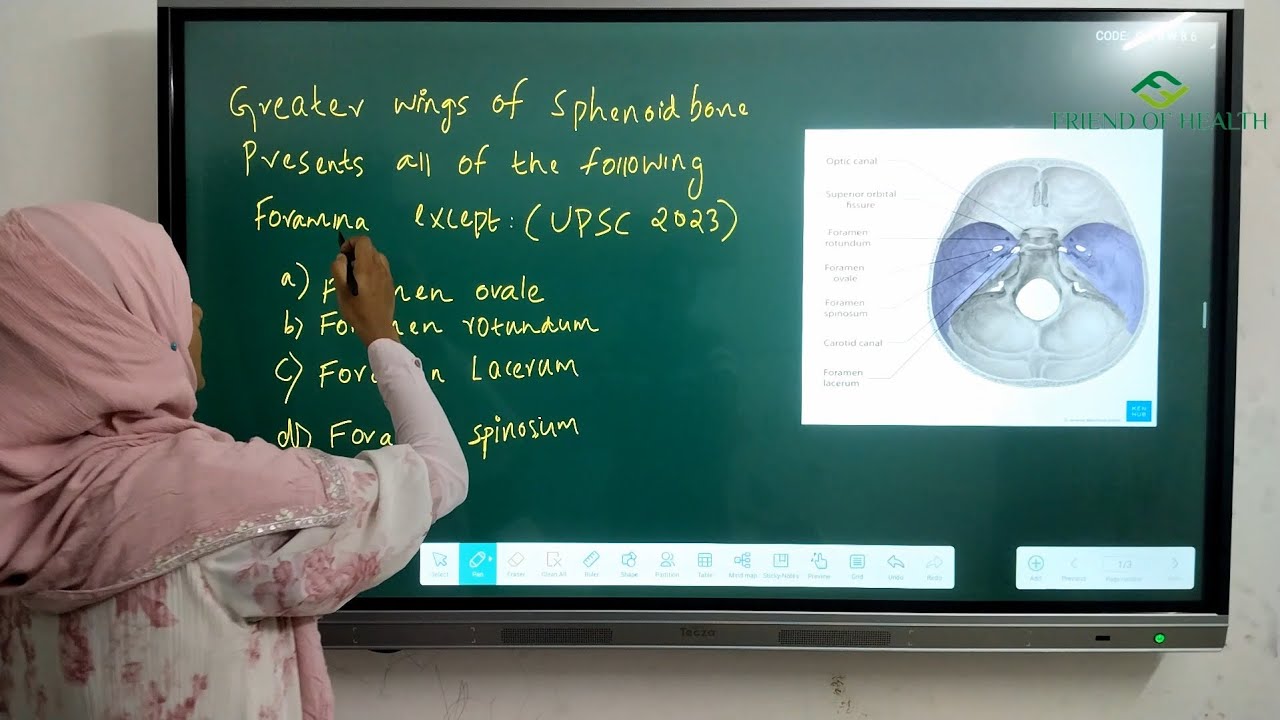 CODE:
FRIEND OF HEALTH
Greater wings of Sphenoid bone
Presents all of the following
Foramina except: (UPSC 2023)
a) Foramen ovale
b) Foramen rotundum
c) Foramen Lacerum
d) Fora spinosum
Optic canal
Superior orbital
fissure
Foramen
rotundum
Foramen
ovale
Foramen
spinosum
Carotid canal
Foramen
lacerum
KEN
HUB
Select
Pen
Eraser
Clean All
Ruler
Shape
Partition
Table
Mind map
Sticky Notes
Preview
Grid
Undo
Redo
Add
Previous
1/3
Page number
Tecza